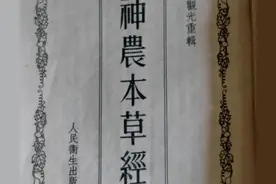 觀光重輯
神農本草經
人民衛生出版